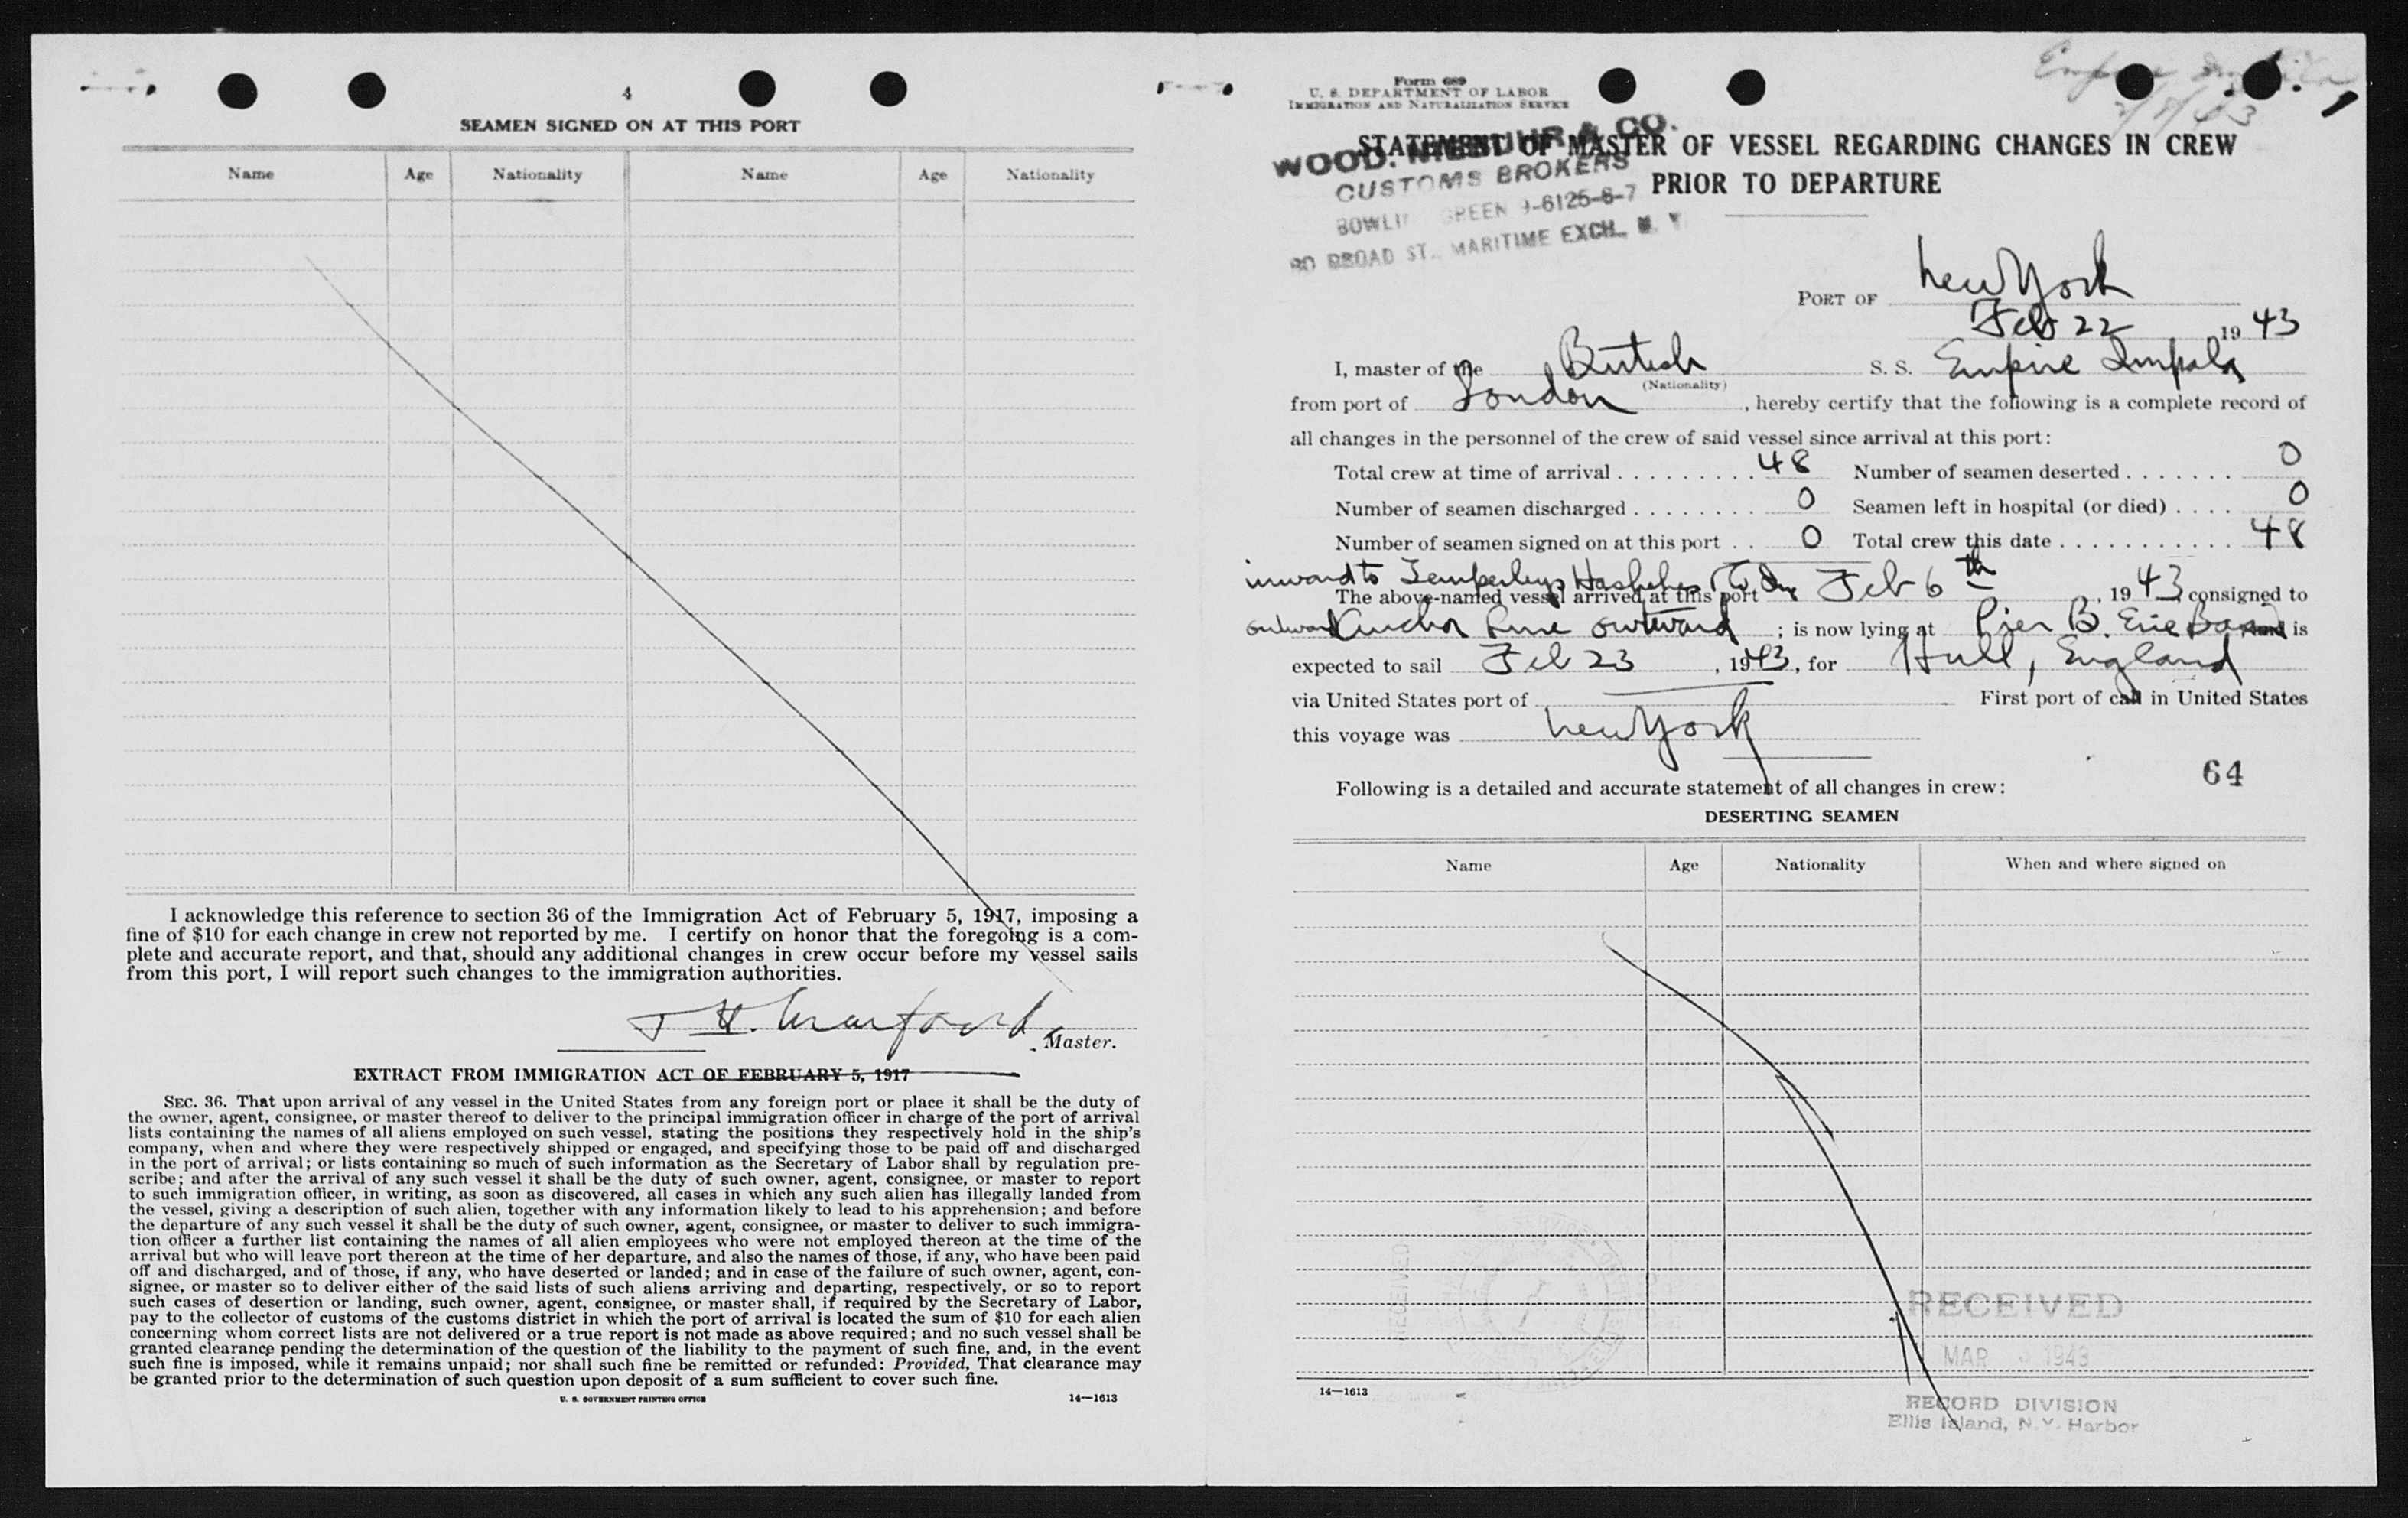 4
SEAMEN SIGNED ON AT THIS PORT
Name Age Nationality Name Age Nationality
I acknowledge this reference to section 36 of the Immigration Act of February 5, 1917, imposing a
fine of $10 for each change in crew not reported by me. I certify on honor that the foregoing is a com-
plete and accurate report, and that, should any additional changes in crew occur before my vessel sails
from this port, I will report such changes to the immigration authorities.
J H. Crawford
Master.
EXTRACT FROM IMMIGRATION ACT OF FEBRUARY 5, 1917
SEC. 36. That upon arrival of any vessel in the United States from any foreign port or place it shall be the duty of
the owner, agent, consignee, or master thereof to deliver to the principal immigration officer in charge of the port of arrival
lists containing the names of all aliens employed on such vessel, stating the positions they respectively hold in the ship's
company, when and where they were respectively shipped or engaged, and specifying those to be paid off and discharged
in the port of arrival; or lists containing so much of such information as the Secretary of Labor shall by regulation pre-
scribe; and after the arrival of any such vessel it shall be the duty of such owner, agent, consignee, or master to report
to such immigration officer, in writing, as soon as discovered, all cases in which any such alien has illegally landed from
the vessel, giving a description of such alien, together with any information likely to lead to his apprehension; and before
the departure of any such vessel it shall be the duty of such owner, agent, consignee, or master to deliver to such immigra-
tion officer a further list containing the names of all alien employees who were not employed thereon at the time of the
arrival but who will leave port thereon at the time of her departure, and also the names of those, if any, who have been paid
off and discharged, and of those, if any, who have deserted or landed; and in case of the failure of such owner, agent, con-
signee, or master so to deliver either of the said lists of such aliens arriving and departing, respectively, or so to report
such cases of desertion or landing, such owner, agent, consignee, or master shall, if required by the Secretary of Labor,
pay to the collector of customs of the customs district in which the port of arrival is located the sum of $10 for each alien
concerning whom correct lists are not delivered or a true report is not made as above required; and no such vessel shall be
granted clearance pending the determination of the question of the liability to the payment of such fine, and, in the event
such fine is imposed, while it remains unpaid; nor shall such fine be remitted or refunded: Provided, That clearance may
be granted prior to the determination of such question upon deposit of a sum sufficient to cover such fine.
U. S. GOVERNMENT PRINTING OFFICE 14—1613
Form 689
U. S. DEPARTMENT OF LABOR
IMMIGRATION AND NATURALIZATION SERVICE
Empire
STATEMENT OF MASTER OF VESSEL REGARDING CHANGES IN CREW
PRIOR TO DEPARTURE
WOOD, NIEBUHR & CO.
CUSTOMS BROKERS
BOWLING GREEN 9-6125-6-7
80 BROAD ST., MARITIME EXCH., N. Y.
PORT OF New York
Feb 22 1943
I, master of the British S. S. Empire Impala
(Nationality)
from port of London, hereby certify that the following is a complete record of
all changes in the personnel of the crew of said vessel since arrival at this port:
Total crew at time of arrival 48 Number of seamen deserted 0
Number of seamen discharged 0 Seamen left in hospital (or died) 0
Number of seamen signed on at this port 0 Total crew this date 48
inward to Temperleys
The above-named vessel arrived at this port Feb 6th, 1943, consigned to
outward Anchor Line outward; is now lying at Pier B. Erie is
expected to sail Feb 23, 1943, for Hull, England
via United States port of First port of call in United States
this voyage was New York
64
Following is a detailed and accurate statement of all changes in crew:
DESERTING SEAMEN
Name Age Nationality When and where signed on
RECEIVED
RECEIVED
MAR 1943
14—1613
RECORD DIVISION
Ellis Island, N. Y. Harbor